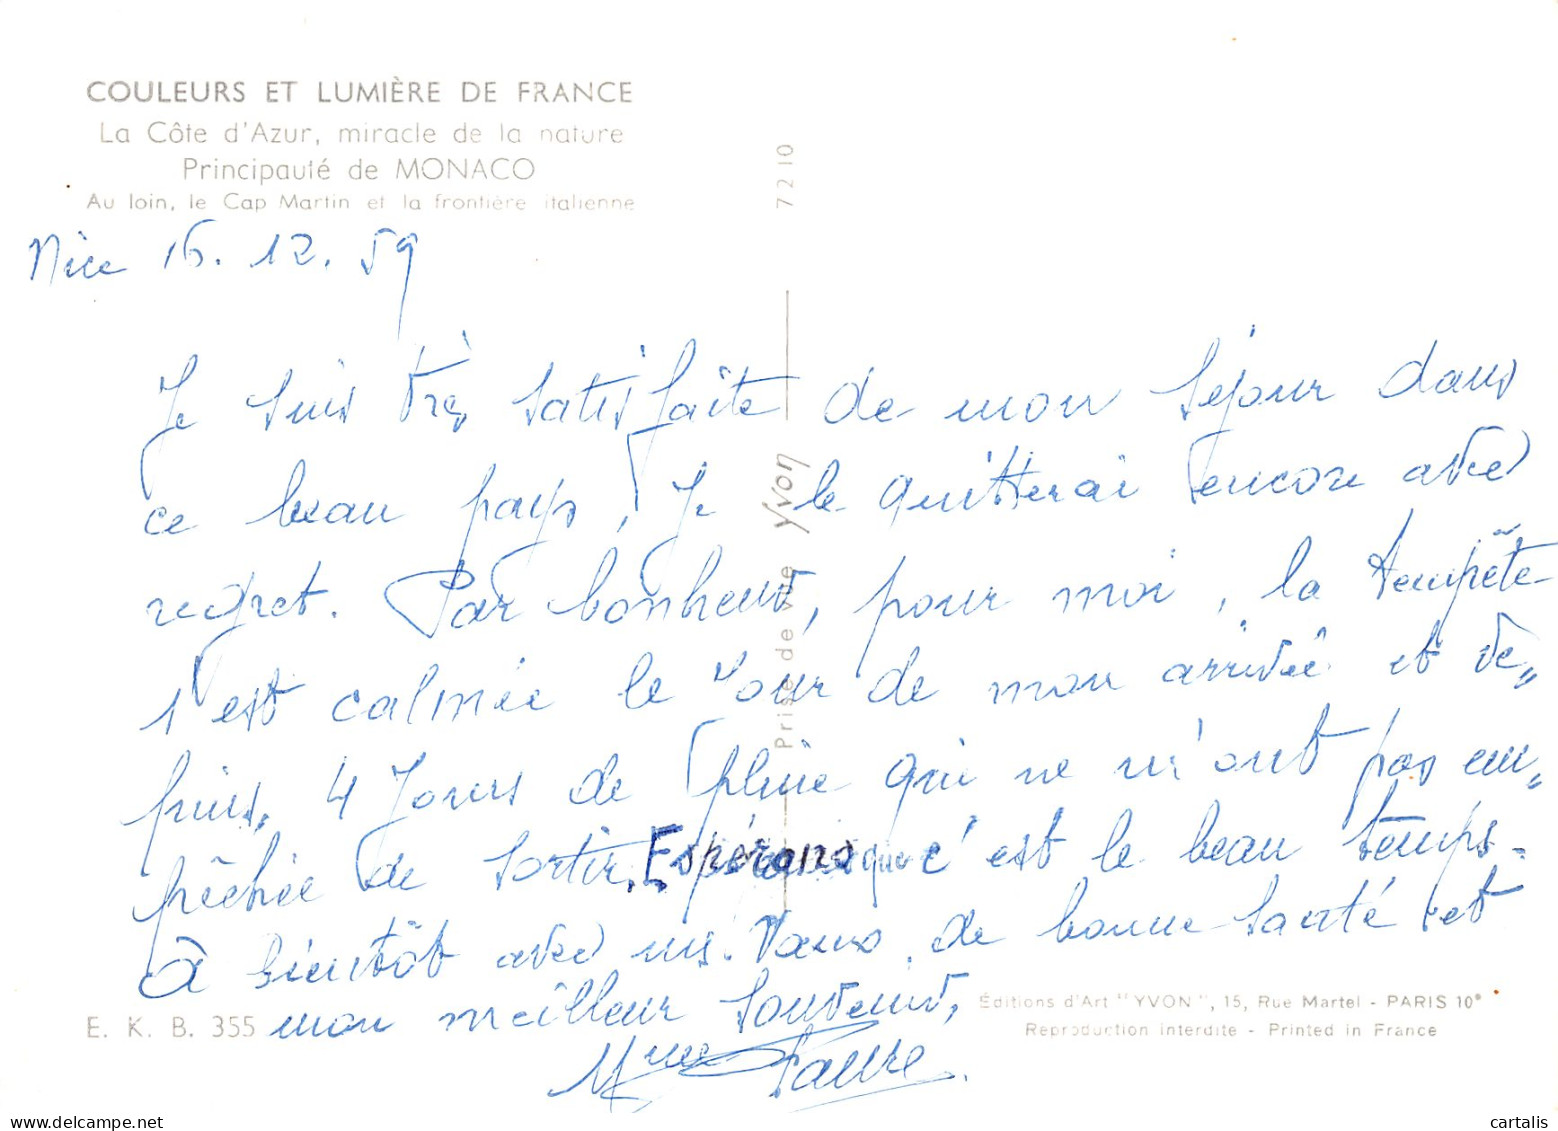 COULEURS ET LUMIÈRE DE FRANCE
La Côte d'Azur, miracle de la nature
Principauté de MONACO
Au loin, le Cap Martin et la frontière italienne
7210
Nice 16.12.59
Je suis très satisfaite de mon séjour dans
ce beau pays, Je le quitterai encore avec
regret. Par bonheur, pour moi, la tempête
s'est calmée le jour de mon arrivée et de„
puis, 4 Jours de pluie qui ne m'ont pas em„
pêchée de sortir. Espérons que c'est le beau temps-
À bientôt avec ms. Vœux de bonne santé et
mon meilleur souvenir,
Mme Faure
Prise de vue Yvon
E. K. B. 355
Éditions d'Art "YVON", 15, Rue Martel - PARIS 10e
Reproduction interdite - Printed in France
cartalis